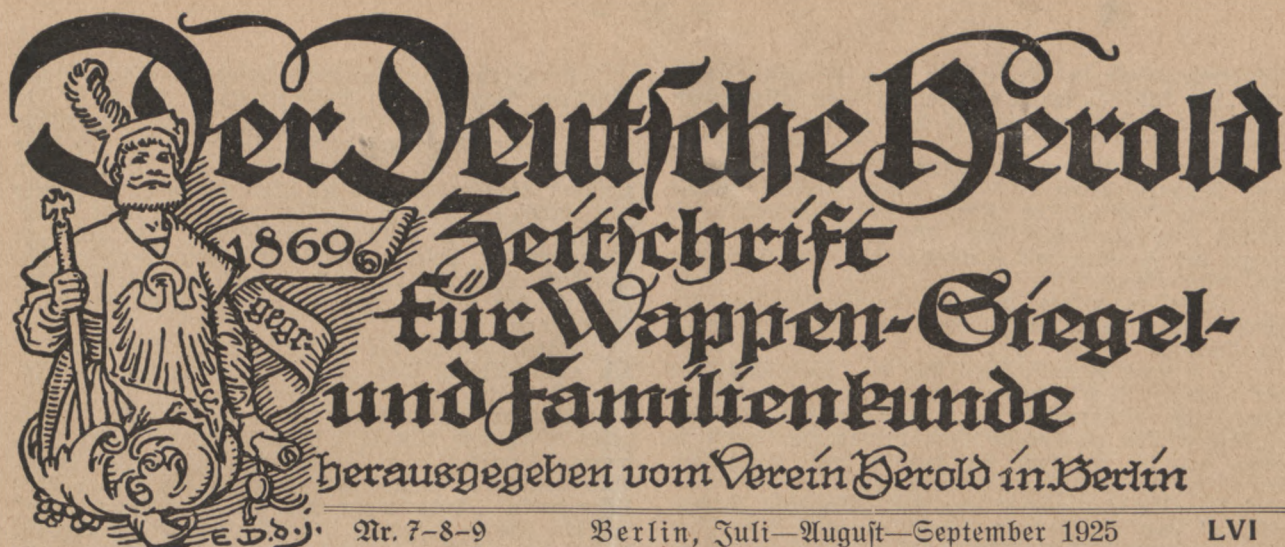 Der Deutsche Herold
Zeitschrift
für Wappen-Siegel-
und Familienkunde
herausgegeben vom Verein Herold in Berlin
1869
gegr.
E.D.d.J.
Nr. 7–8–9 Berlin, Juli—August—September 1925 LVI